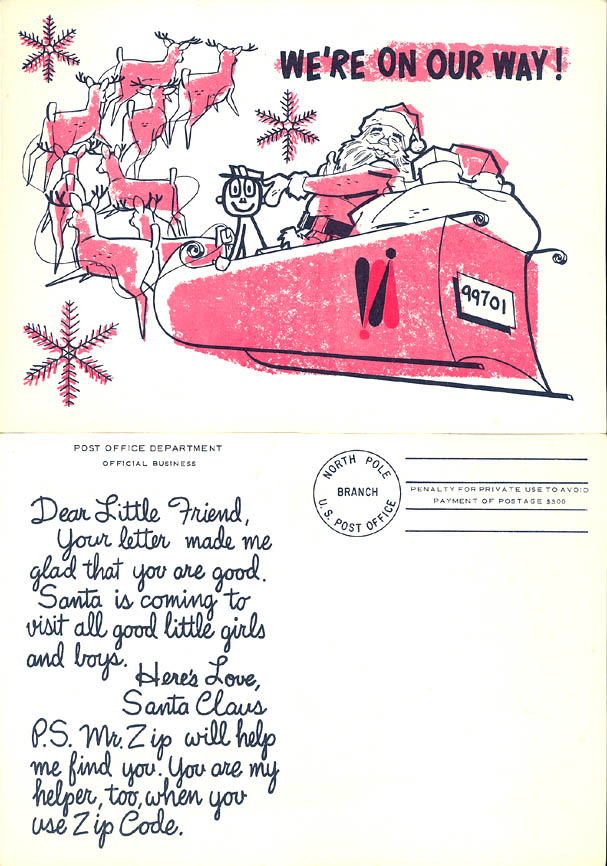 WE'RE ON OUR WAY!
99701
POST OFFICE DEPARTMENT
OFFICIAL BUSINESS
NORTH POLE
BRANCH
U.S. POST OFFICE
PENALTY FOR PRIVATE USE TO AVOID
PAYMENT OF POSTAGE $300
Dear Little Friend,
Your letter made me
glad that you are good.
Santa is coming to
visit all good little girls
and boys.
Here's Love,
Santa Claus
P.S. Mr. Zip will help
me find you. You are my
helper, too, when you
use Zip Code.